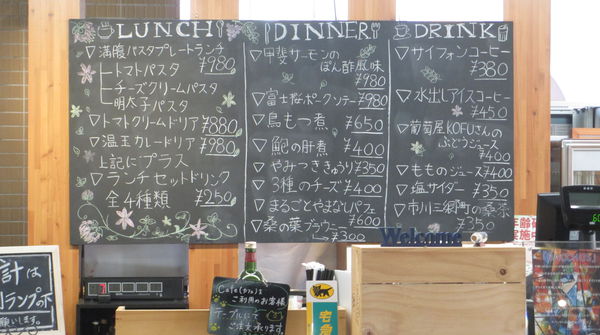 LUNCH
▽満腹パスタプレートランチ
トマトパスタ ¥980
チーズクリームパスタ
明太子パスタ
▽トマトクリームドリア ¥880
▽温玉カレードリア ¥980
上記にプラス
▽ランチセットドリンク
全4種類 ¥250
DINNER
▽甲斐サーモンの
ぽん酢風味
¥980
▽富士桜ポークソテー ¥980
▽鳥もつ煮 ¥650
▽鮑の肝煮 ¥400
▽やみつききゅうり ¥350
▽3種のチーズ ¥400
▽まるごとやまなしパフェ
¥600
▽桑の葉ブラウニー
¥300
DRINK
▽サイフォンコーヒー
¥380
▽水出しアイスコーヒー
¥450
▽葡萄屋KOFUさんの
ぶどうジュース
¥400
▽もものジュース ¥400
▽塩サイダー ¥350
▽市川三郷町の桑茶
¥350
Welcome
計は
ランプの下
願いします。
Cafe(カフェ)を
ご利用のお客様
テーブルにて
ご注文承ります
宅急
年齢確
実施中